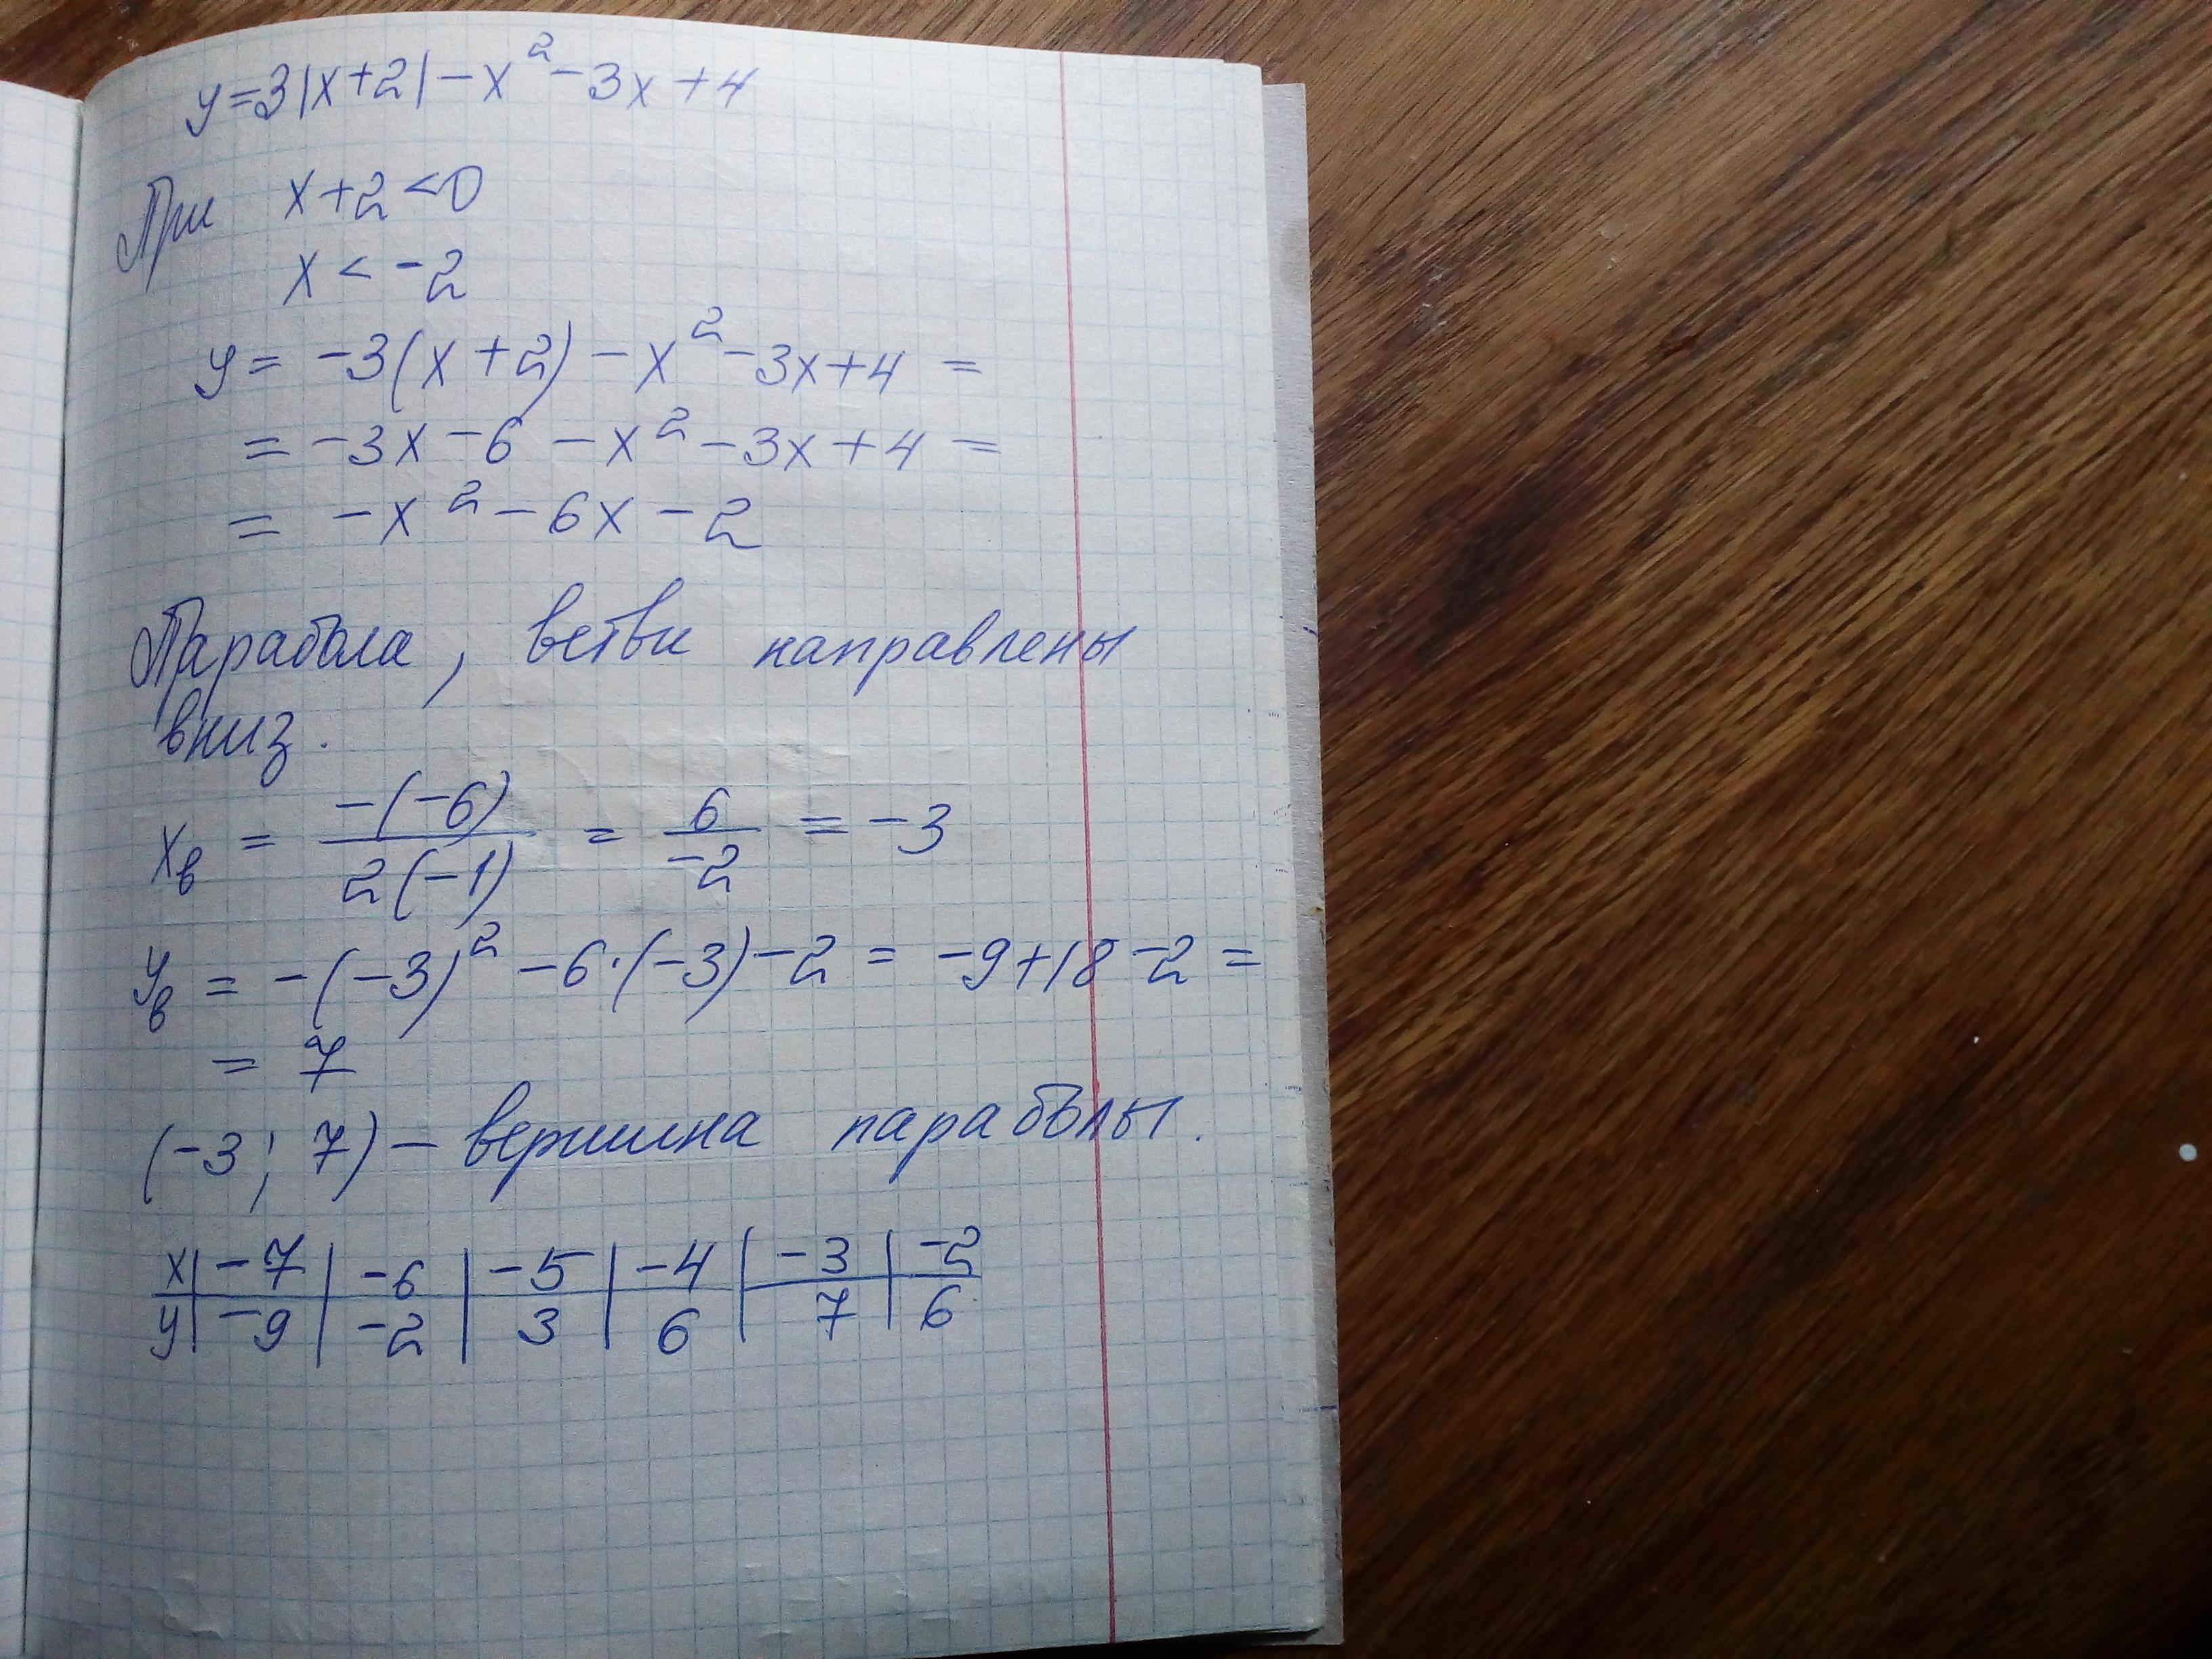 y=3|x+2|-x²-3x+4
При x+2<0
x<-2
y= -3(x+2)-x²-3x+4 =
= -3x-6-x²-3x+4 =
= -x²-6x-2
Парабола, ветви направлены
вниз.
xв = -(-6)/2(-1) = 6/-2 = -3
yв = -(-3)²-6·(-3)-2 = -9+18-2 =
= 7
(-3; 7) - вершина параболы.
x | -7 | -6 | -5 | -4 | -3 | -2
y | -9 | -2 | 3 | 6 | 7 | 6